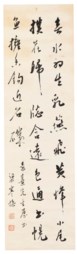 春水初生乳燕飛黃蜂小尾
撲花歸窗含遠色通書幌
魚擁香鈎近石磯